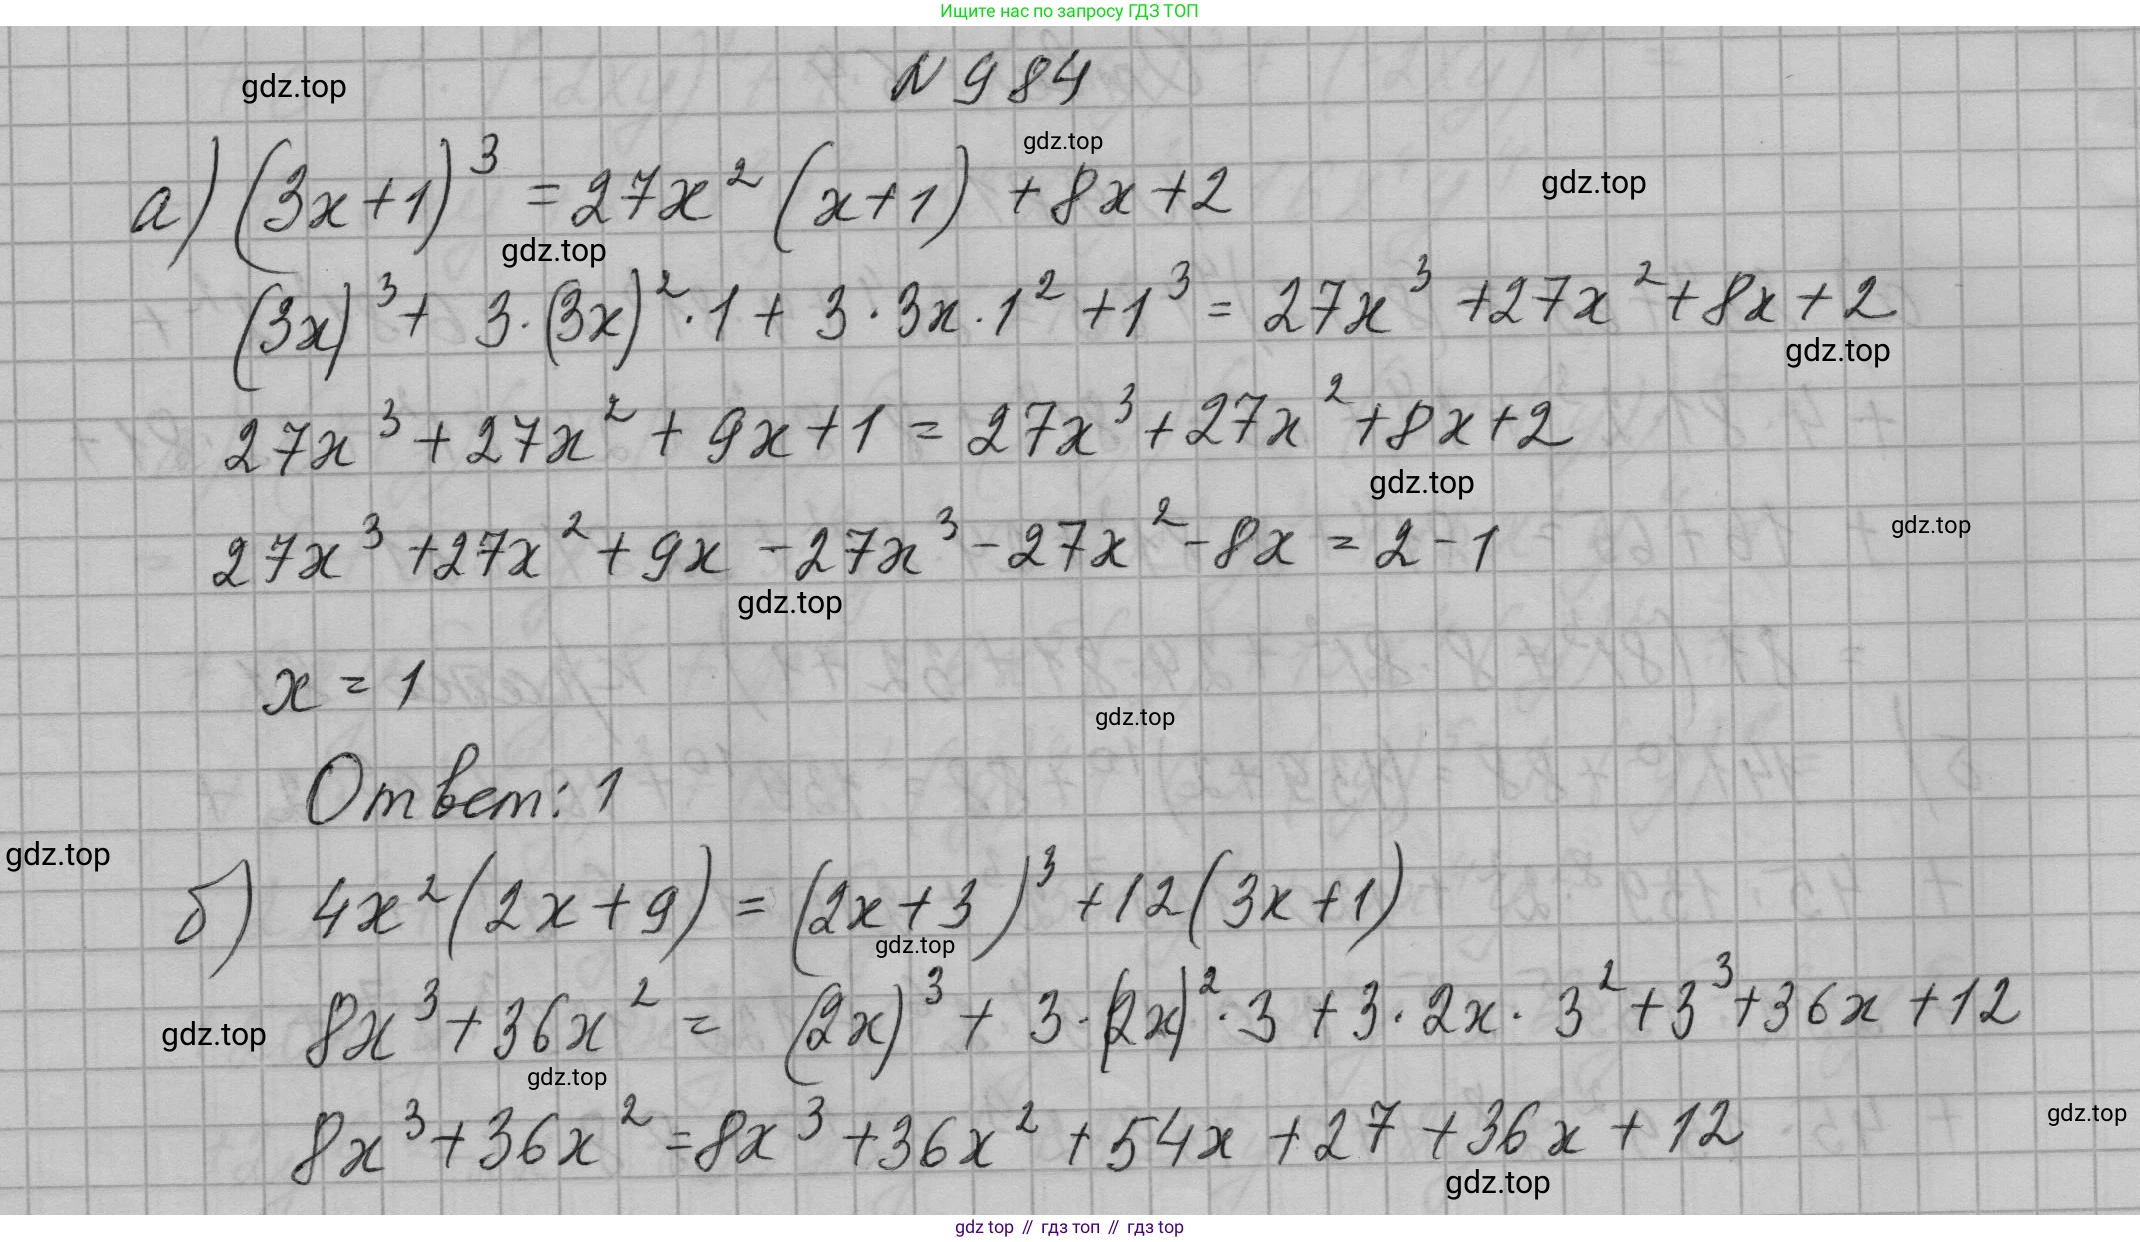 Ищите нас по запросу ГДЗ ТОП
N 984
gdz.top
gdz.top
а) (3x+1)³ = 27x² (x+1) + 8x + 2
gdz.top
gdz.top
(3x)³ + 3·(3x)²·1 + 3·3x·1² + 1³ = 27x³ + 27x² + 8x + 2
gdz.top
27x³ + 27x² + 9x + 1 = 27x³ + 27x² + 8x + 2
gdz.top
gdz.top
27x³ + 27x² + 9x - 27x³ - 27x² - 8x = 2 - 1
gdz.top
x = 1
gdz.top
Ответ: 1
gdz.top
б) 4x² (2x + 9) = (2x + 3)³ + 12 (3x + 1)
gdz.top
8x³ + 36x² = (2x)³ + 3·(2x)²·3 + 3·2x·3² + 3³ + 36x + 12
gdz.top
gdz.top
8x³ + 36x² = 8x³ + 36x² + 54x + 27 + 36x + 12
gdz.top
gdz.top
gdz top // гдз топ // гдз top